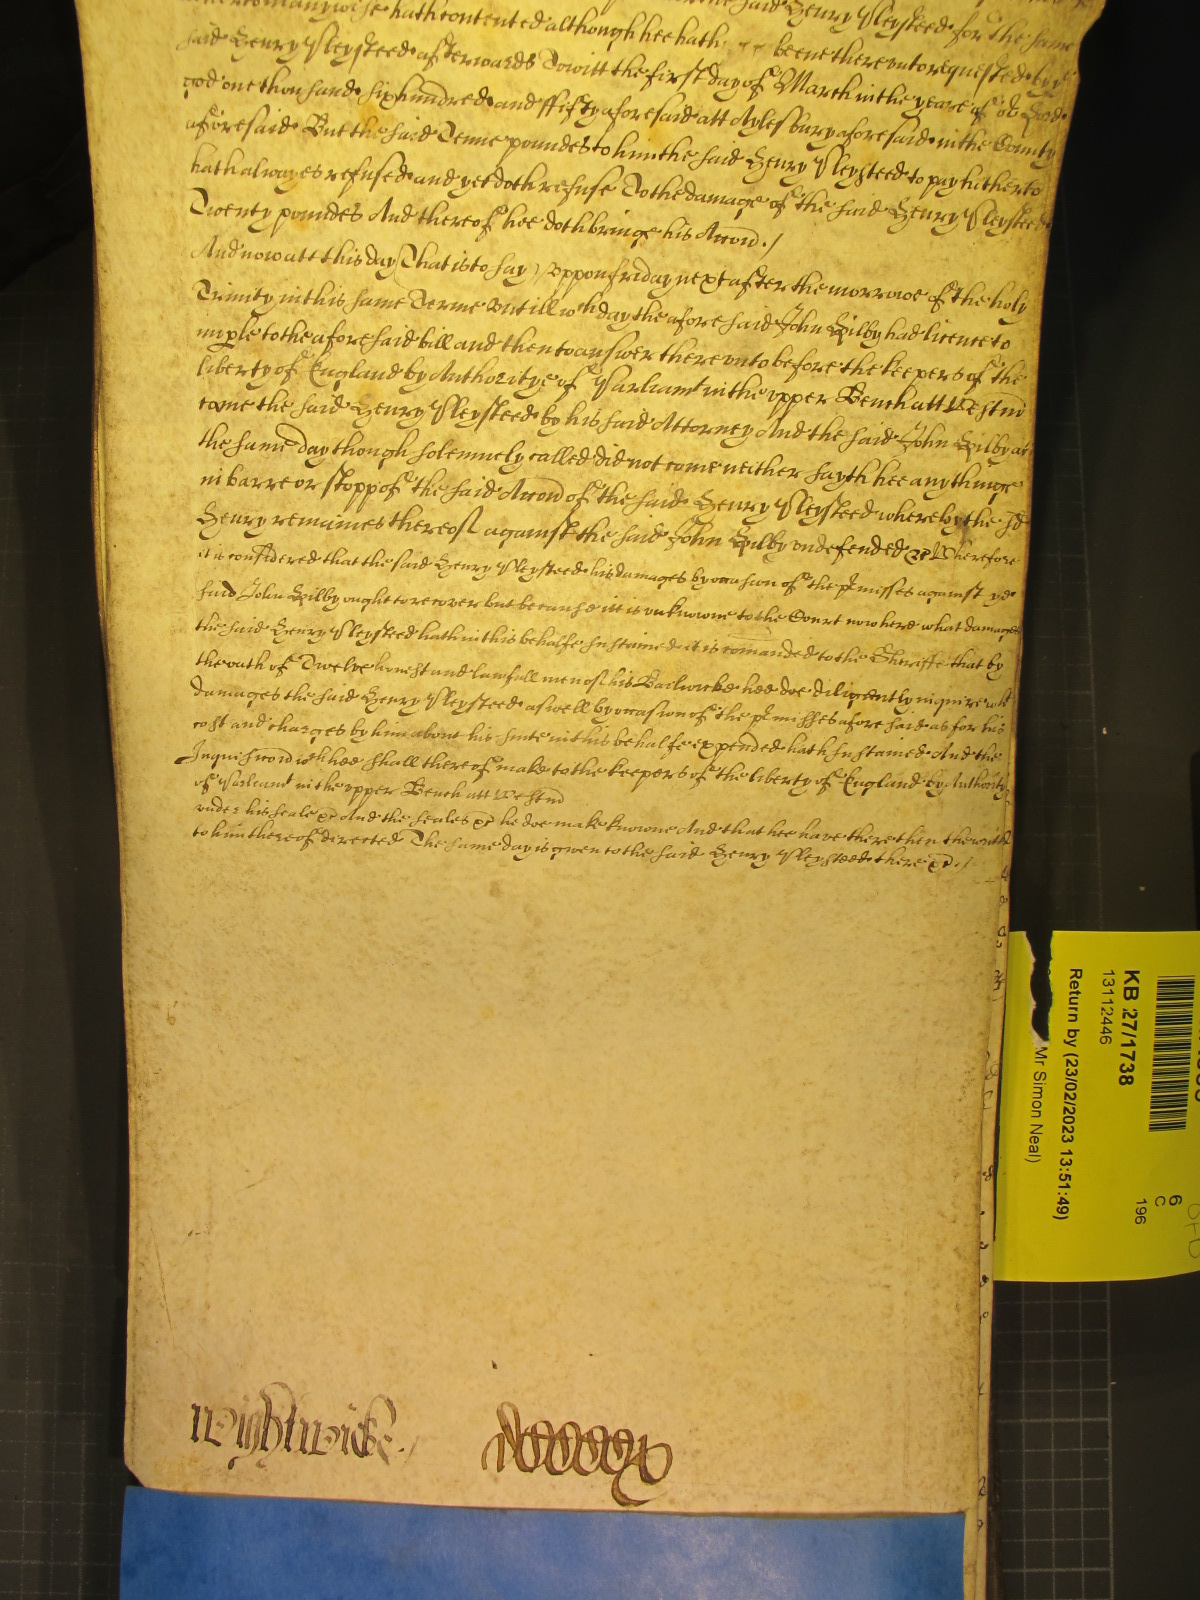 hath contented although hee hath beene thereunto requested by ye
said Henry Pleysteed afterwards Towitt the first day of March in the yeare of or Lord
god one thousand sixhundred and ffifty aforesaid att Aylesbury aforesaid in the County
aforesaid But the said Tenne poundes to him the said Henry Pleysteed to pay hitherto
hath alwayes refused and yet doth refuse To the damage of the said Henry Pleysteed
Twenty poundes And thereof hee doth bringe his Accon ./
And now att this day (That is to say) uppon friday next after the morrowe of the holy
Trinity in this same Terme untill wch day the aforesaid John Bilby had licence to
imple to the aforesaid bill and then to answer thereunto before the keepers of the
liberty of England by Authoritye of Parliamt in the upper Bench att Westm
came the said Henry Pleysteed by his said Attorney And the said John Bilby att
the same day though solemnely called did not come neither sayth hee any thinge
in barre or stopp of the said Accon of the said Henry Pleysteed whereby the sd
Henry remaines thereof against the said John Bilby undefended &c Wherefore
it is considered that the said Henry Pleysteed his damages by occasion of the pmisses against ye
said John Bilby ought to recover but because itt is unknowne to the Court now here what damages
the said Henry Pleysteed hath in this behalfe sustained it is comanded to the Sheriffe that by
the oath of Twelve honest and lawfull men of his Bailwicke hee doe diligently inquire wt
damages the said Henry Pleysteed aswell by occasion of the pmisses aforesaid as for his
cost and charges by him about his suite in this behalfe expended hath sustained And the
Inquisicon wch hee shall thereof make to the keepers of the liberty of England by Authority
of Parliamt in the upper Bench att Westm
under his seale &c And the seales &c he doe make knowne And that hee have there then the writt
to him thereof directed The same day is given to the said Henry Pleysteed there &c ./
Wightwicke ./
KB 27/1738
13112446
Return by (23/02/2023 13:51:49)
Mr Simon Neal)
6
C
196